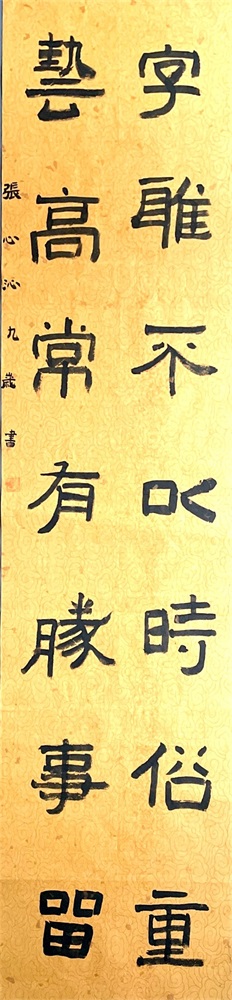 字雅不以時俗重
藝高常有勝事留
張心沁九歲書